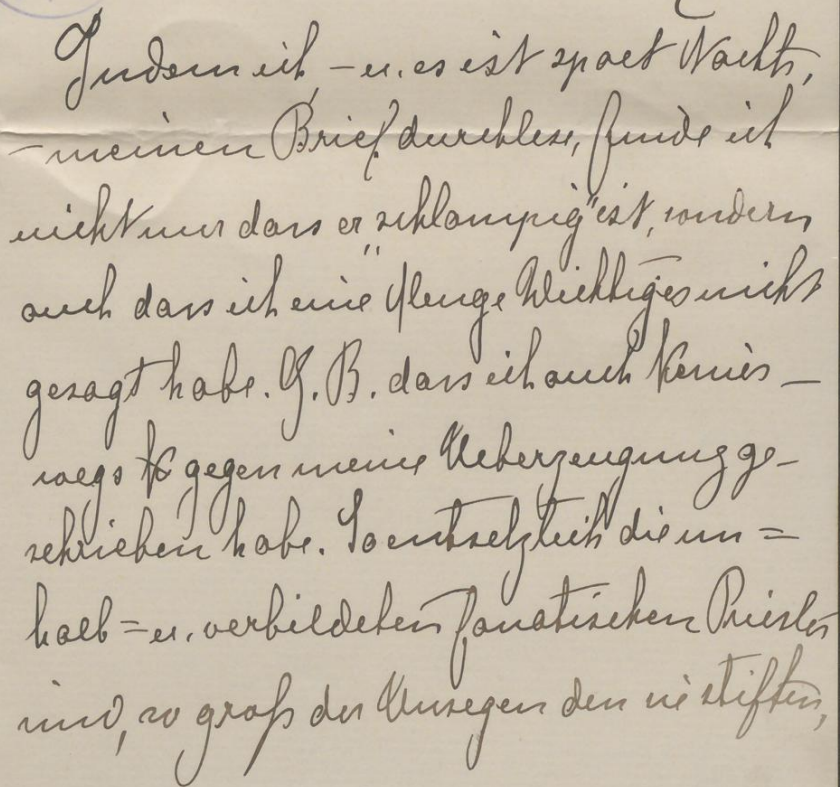 Indem ich, – u. es ist spaet Nachts,
– meinen Brief durchlese, finde ich
nicht nur dass er „schlampig" ist, sondern
auch dass ich eine Menge Wichtiges nicht
gesagt habe. Z. B. dass ich auch keines–
wegs gegen meine Ueberzeugung ge–
schrieben habe. So entsetzlich die un=
halb= u. verbildeten fanatischen Priester
sind, so groß der Unsegen den sie stiften,